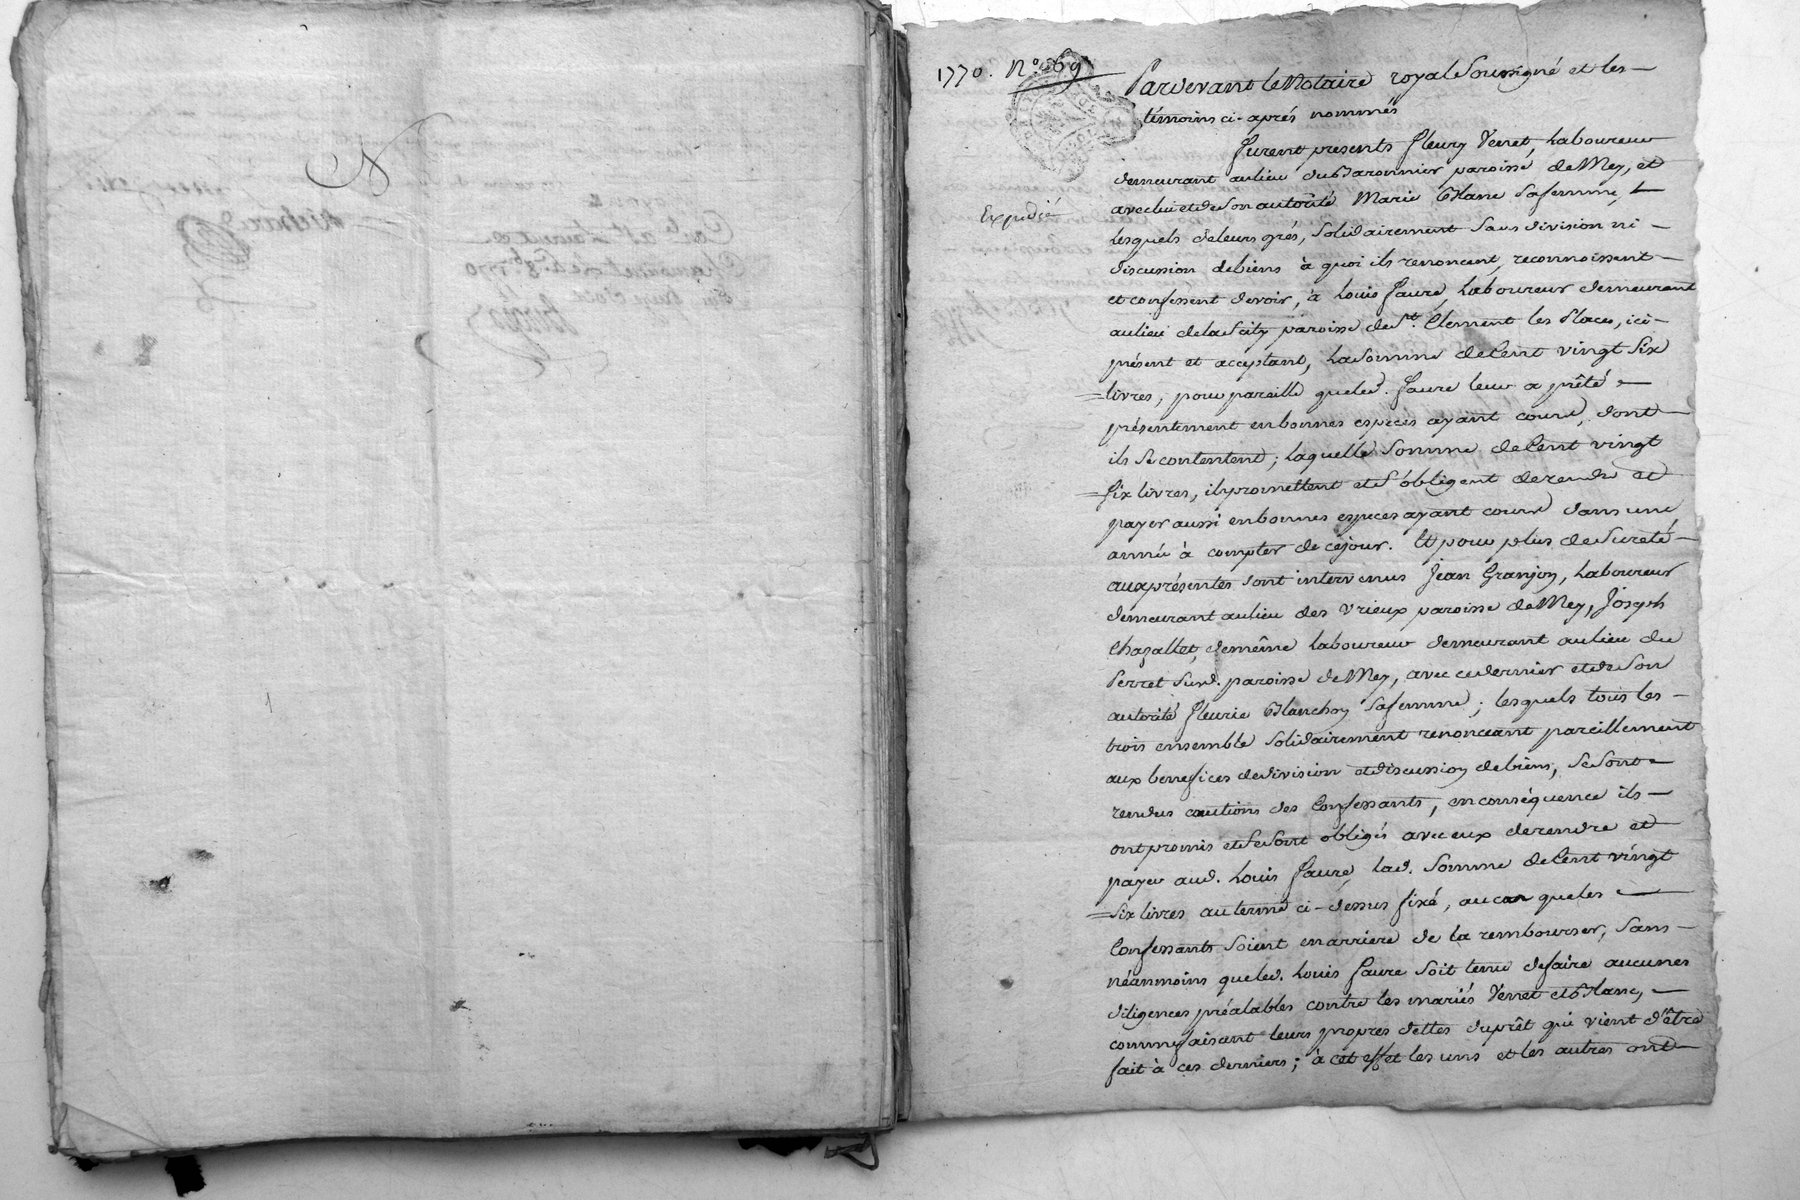 1770. N.° 369
Pardevant le Notaire royal Soussigné et les
témoins ci-aprés nommés
furent presents fleury Verret, Laboureur
demeurant au lieu du Baronnier paroisse de Mey, et
Expedié
avec lui et de Son autorité Marie Blanc Sa femme,
Lesquels de leurs grés, Solidairement Sans division ni
discussion de biens à quoi ils renoncent, reconnoissent
et confessent devoir, à Louis faure, Laboureur demeurant
au lieu de la paroisse de St. Clement les Places, ici
présent et acceptant, La Somme de Cent vingt Six
livres, pour pareille que led. faure leur a prêté
présentement en bonnes especes ayant cours, dont
ils Se contentent; laquelle Somme de Cent vingt
Six livres, ils promettent et S'obligent de rendre et
payer aussi en bonnes especes ayant cours dans une
année à compter de ce jour. Et pour plus de Sureté
aux présentes sont intervenus Jean Granjon, Laboureur
demeurant au lieu des Vrieux paroisse de Mey, Joseph
Chazallet, de même Laboureur demeurant au lieu du
Perret Susd. paroisse de Mey, avec ce dernier et de Son
autorité fleurie Blanchon Sa femme; lesquels tous les
trois ensemble Solidairement renonceant pareillement
aux benefices de division et discussion de biens, Se Sont
rendus cautions des Confessants, en conséquence ils
ont promis et Se Sont obligés avec eux de rendre et
payer aud. Louis faure, lad. Somme de Cent vingt
Six livres au terme ci-dessus fixé, au cas que les
Confessants Soient en arriere de la rembourser, Sans
néanmoins que led. Louis faure Soit tenu de faire aucunes
diligences préalables contre les mariés Verret et Blanc,
comme faisant leurs propres dettes du prêt qui vient d'être
fait à ces derniers; à cet effet les uns et les autres ont